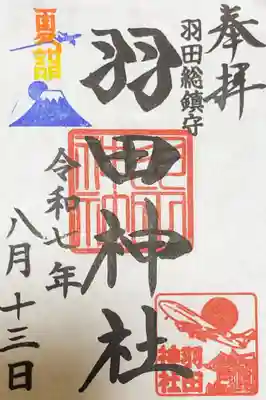 奉拝
羽田総鎮守
夏詣
羽田神社
令和七年
八月十三日
羽田
神社